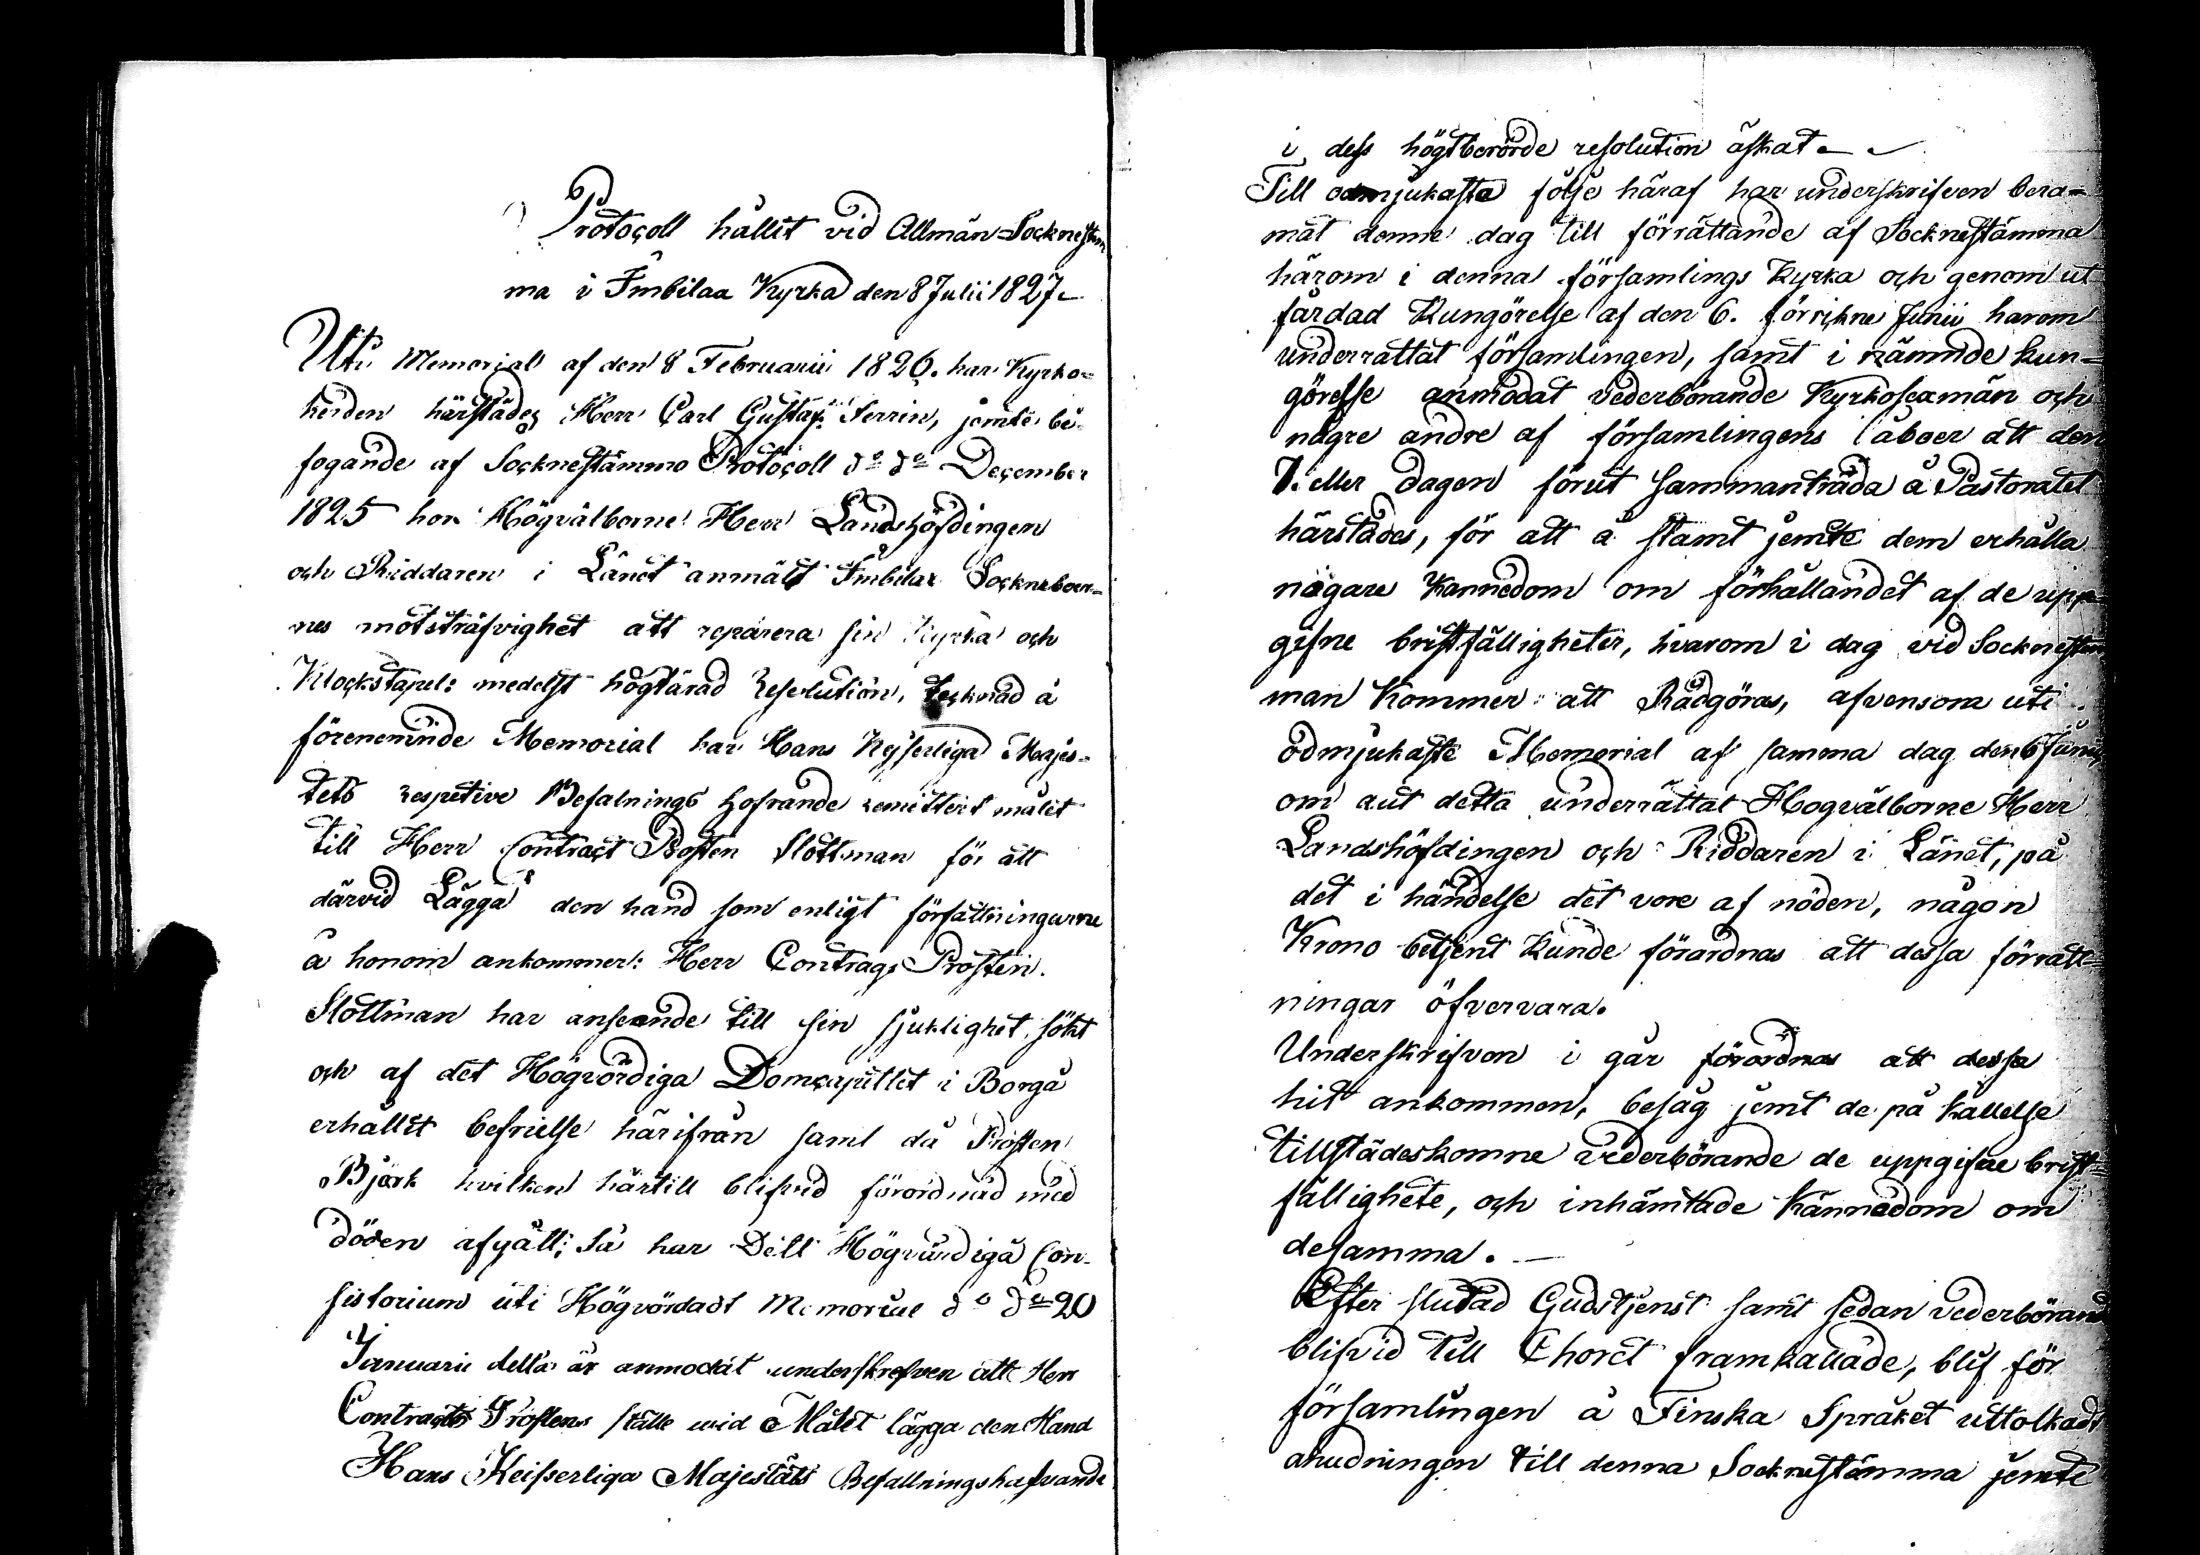 Protocoll hållit vid Allmän Socknestäm
ma i Imbilax Kyrka den 8 Julii 1827.
Uti Memorial af den 8 Februarii 1826. har Kyrko-
herden härstädes Herr Carl Gustaf Serrin, jemte be-
fogande af Socknestämmo Protocoll d° d° December
1825 hos Högvälborne Herr Landshöfdingen
och Riddaren i Länet anmält Imbilax Sockneboer-
nes motsträfvighet att reparera sin Kyrka och
Klockstapel: medelst högtärad Resolution, tecknad å
förenemnde Memorial har Hans Kejserliga Majes-
tets respetive Befalnings hofvande remitterit målet
till Herr Contract Prosten Slottman för att
därvid Lägga den hand som enligt författningarne
å honom ankommer: Herr Contrags Prosten.
Slottman har anseende till sin sjuklighet, sökt
och af det Högvördiga Domcapitlet i Borgå
erhållit befrielse härifrån saml då Prosten
Björk hvilken härtill blifvid förordnad med
döden afgått; Så har Dett Högvürdiga Con-
sistorium uti Högvördadt Memorial d° d° 20
Januarii detta år anmodat underskrefven att Herr
Contracts Prostens ställe wid Målet lägga den Hand
Hans Keiserliga Majestäts Befallningshafvande
i dess högtberörde resolution äskat.
Till ödmjukaste följe häraf har underskrifven bera-
mat denne dag till förrättande af Socknestämma
härom i denna församlings Kyrka och genom ut
färdad Kungörelse af den 6. förvikne Junii harom
underrättat församlingen, samt i nämnde kun-
görelse anmodat vederbörande Kyrkosexmän och
några andre af församlingens åboer att den
7. eller dagen förut sammanträda å Pastoratet
härstädes, för att å stamt jemte dem erhålla
någare kannedom om förhållandet af de upp-
gifne bristfälligheter, hvarom i dag vid Socknestäm
man Kommer att Rådgöras, afvensom uti
ödmjukaste Memorial af samma dag den 6 Junii,
om aut detta underrättat Hogvälborne Herr
Landshöfdingen och Riddaren i Länet, på
det i händelse det vore af nöden, någon
Krono betjent Kunde förordnas att dessa förrätt-
ningar öfvervara.
Underskrifven i går förordnas att dessa
hit ankommen, besåg jemt de på kallelse
tillstädeskomne vederbörande de uppgifne brist-
fällighete, och inhämtade kännedom om
desamma.
Efter slutad Gudstjenst samt sedan vederbörand
blifvid till Choret framkallade, blif för
församlingen å Finska Språket uttolkadt
anledningen till denna Socknestämma jemte